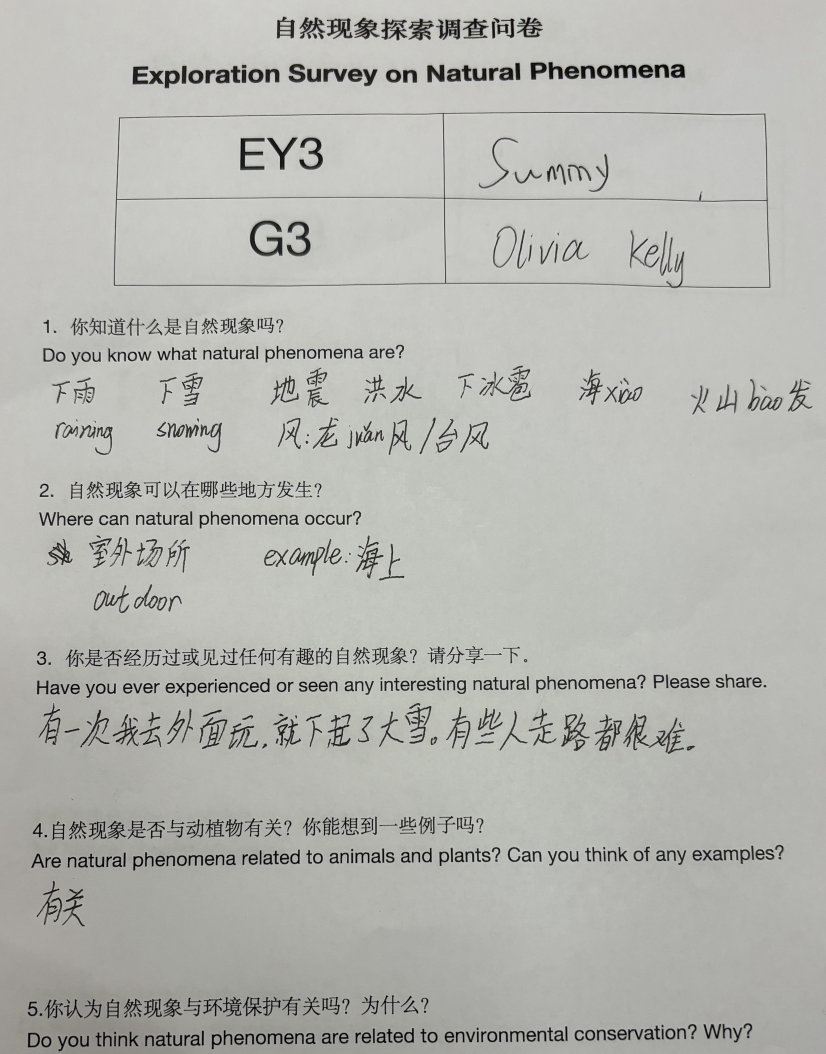 自然现象探索调查问卷
Exploration Survey on Natural Phenomena
EY3 Summy
G3 Olivia Kelly
1. 你知道什么是自然现象吗？
Do you know what natural phenomena are?
下雨 下雪 地震 洪水 下冰雹 海xiào 火山bào发
raining snowing 风：龙juǎn风/台风
2. 自然现象可以在哪些地方发生？
Where can natural phenomena occur?
室外场所 example：海上
outdoor
3. 你是否经历过或见过任何有趣的自然现象？请分享一下。
Have you ever experienced or seen any interesting natural phenomena? Please share.
有一次我去外面玩，就下起了大雪。有些人走路都很难。
4.自然现象是否与动植物有关？你能想到一些例子吗？
Are natural phenomena related to animals and plants? Can you think of any examples?
有关
5.你认为自然现象与环境保护有关吗？为什么？
Do you think natural phenomena are related to environmental conservation? Why?